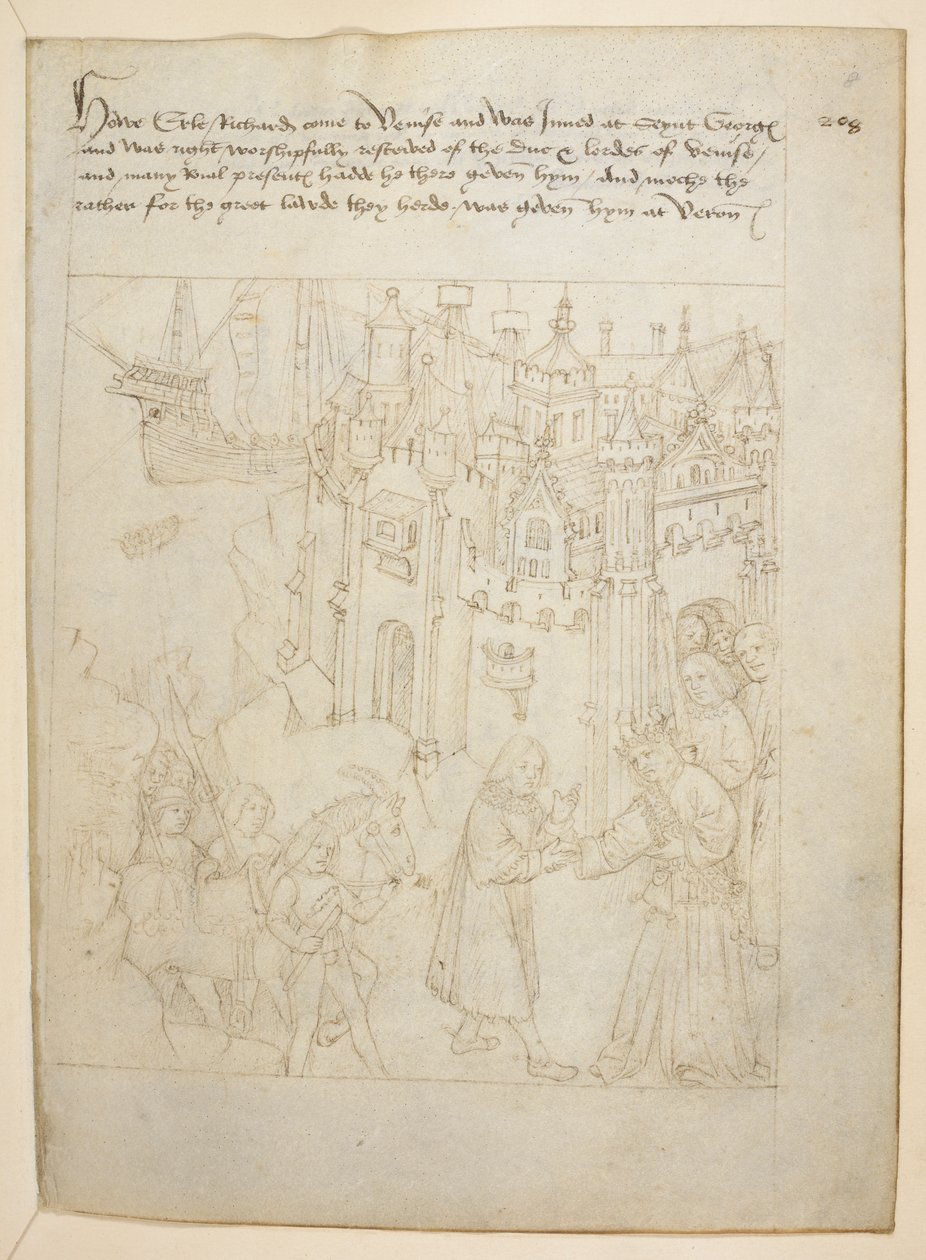 8
208
Howe Erle Richard come to Venise and was Inned at Seynt Georges
and was right worshipfully resceived of the Duc & lordes of Venise /
and many roial presentes hadde he there geven hym / And moche the
rather for the greet lawde they herde was geven hym at Veron